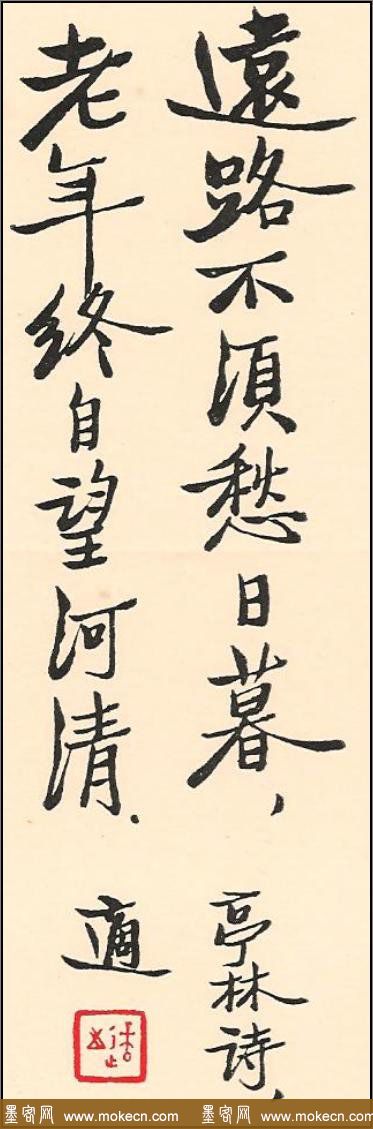 遠路不須愁日暮，
老年終自望河清．
亭林詩，
適
墨客网 www.mokecn.com 墨客网 www.mokecn.com